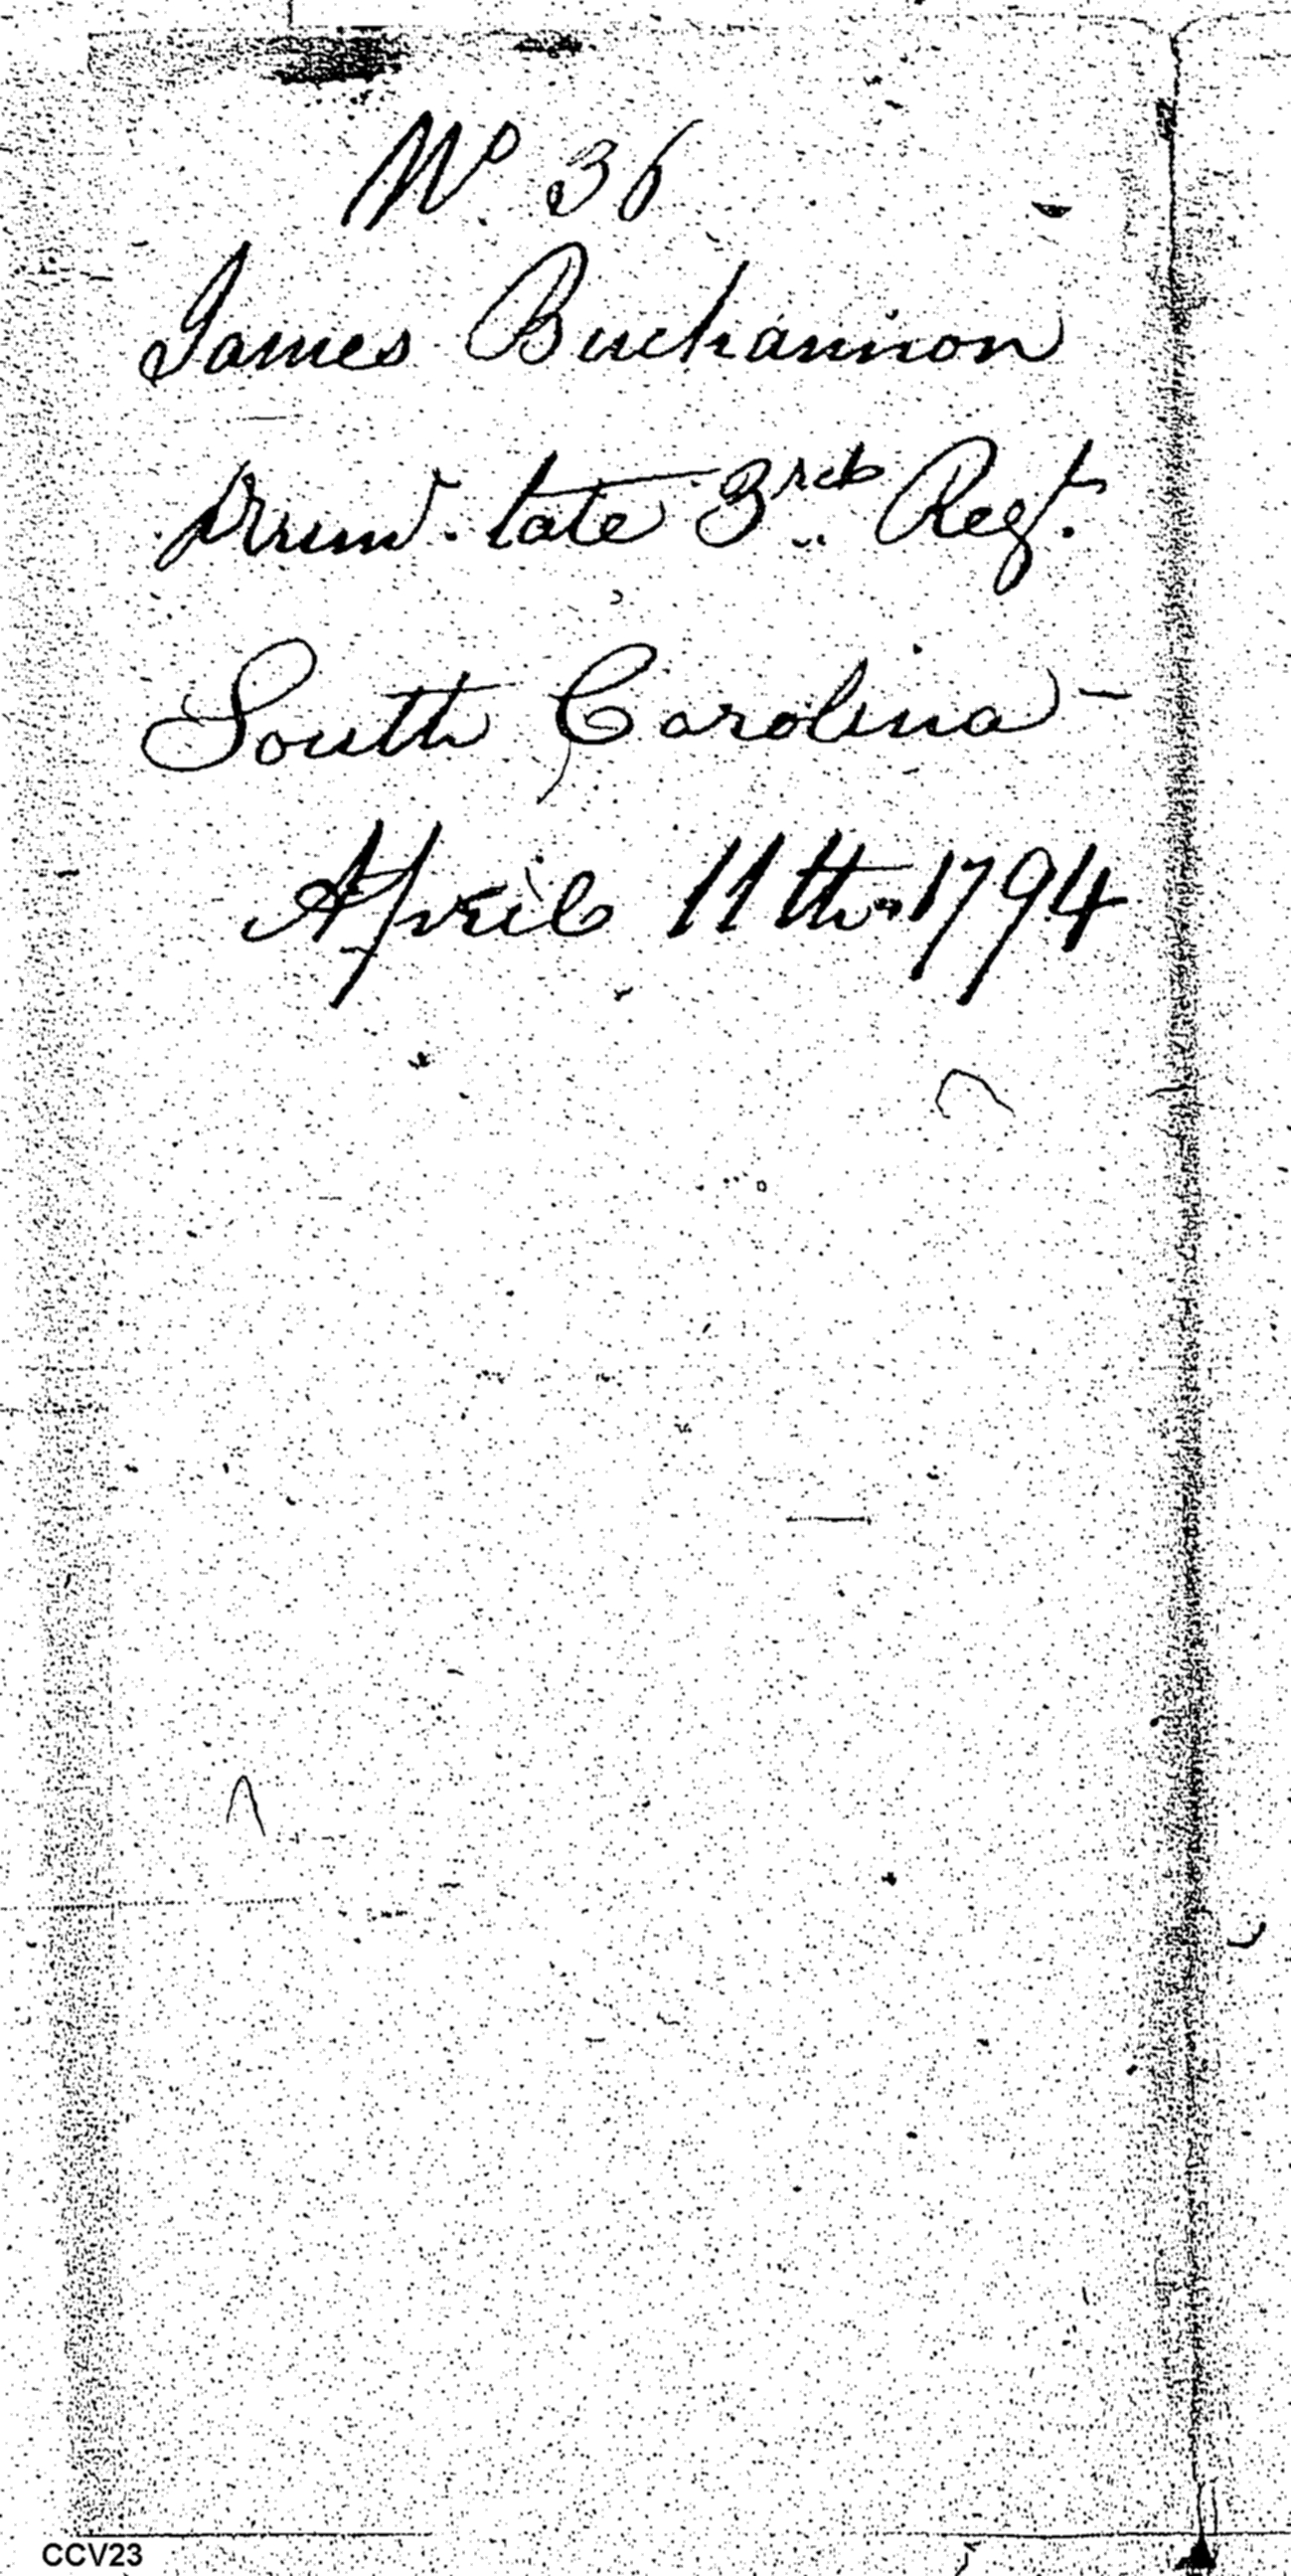 No. 36
James Buchannon
Drumr. late 3rd Regt.
South Carolina -
April 11th 1794
CCV23